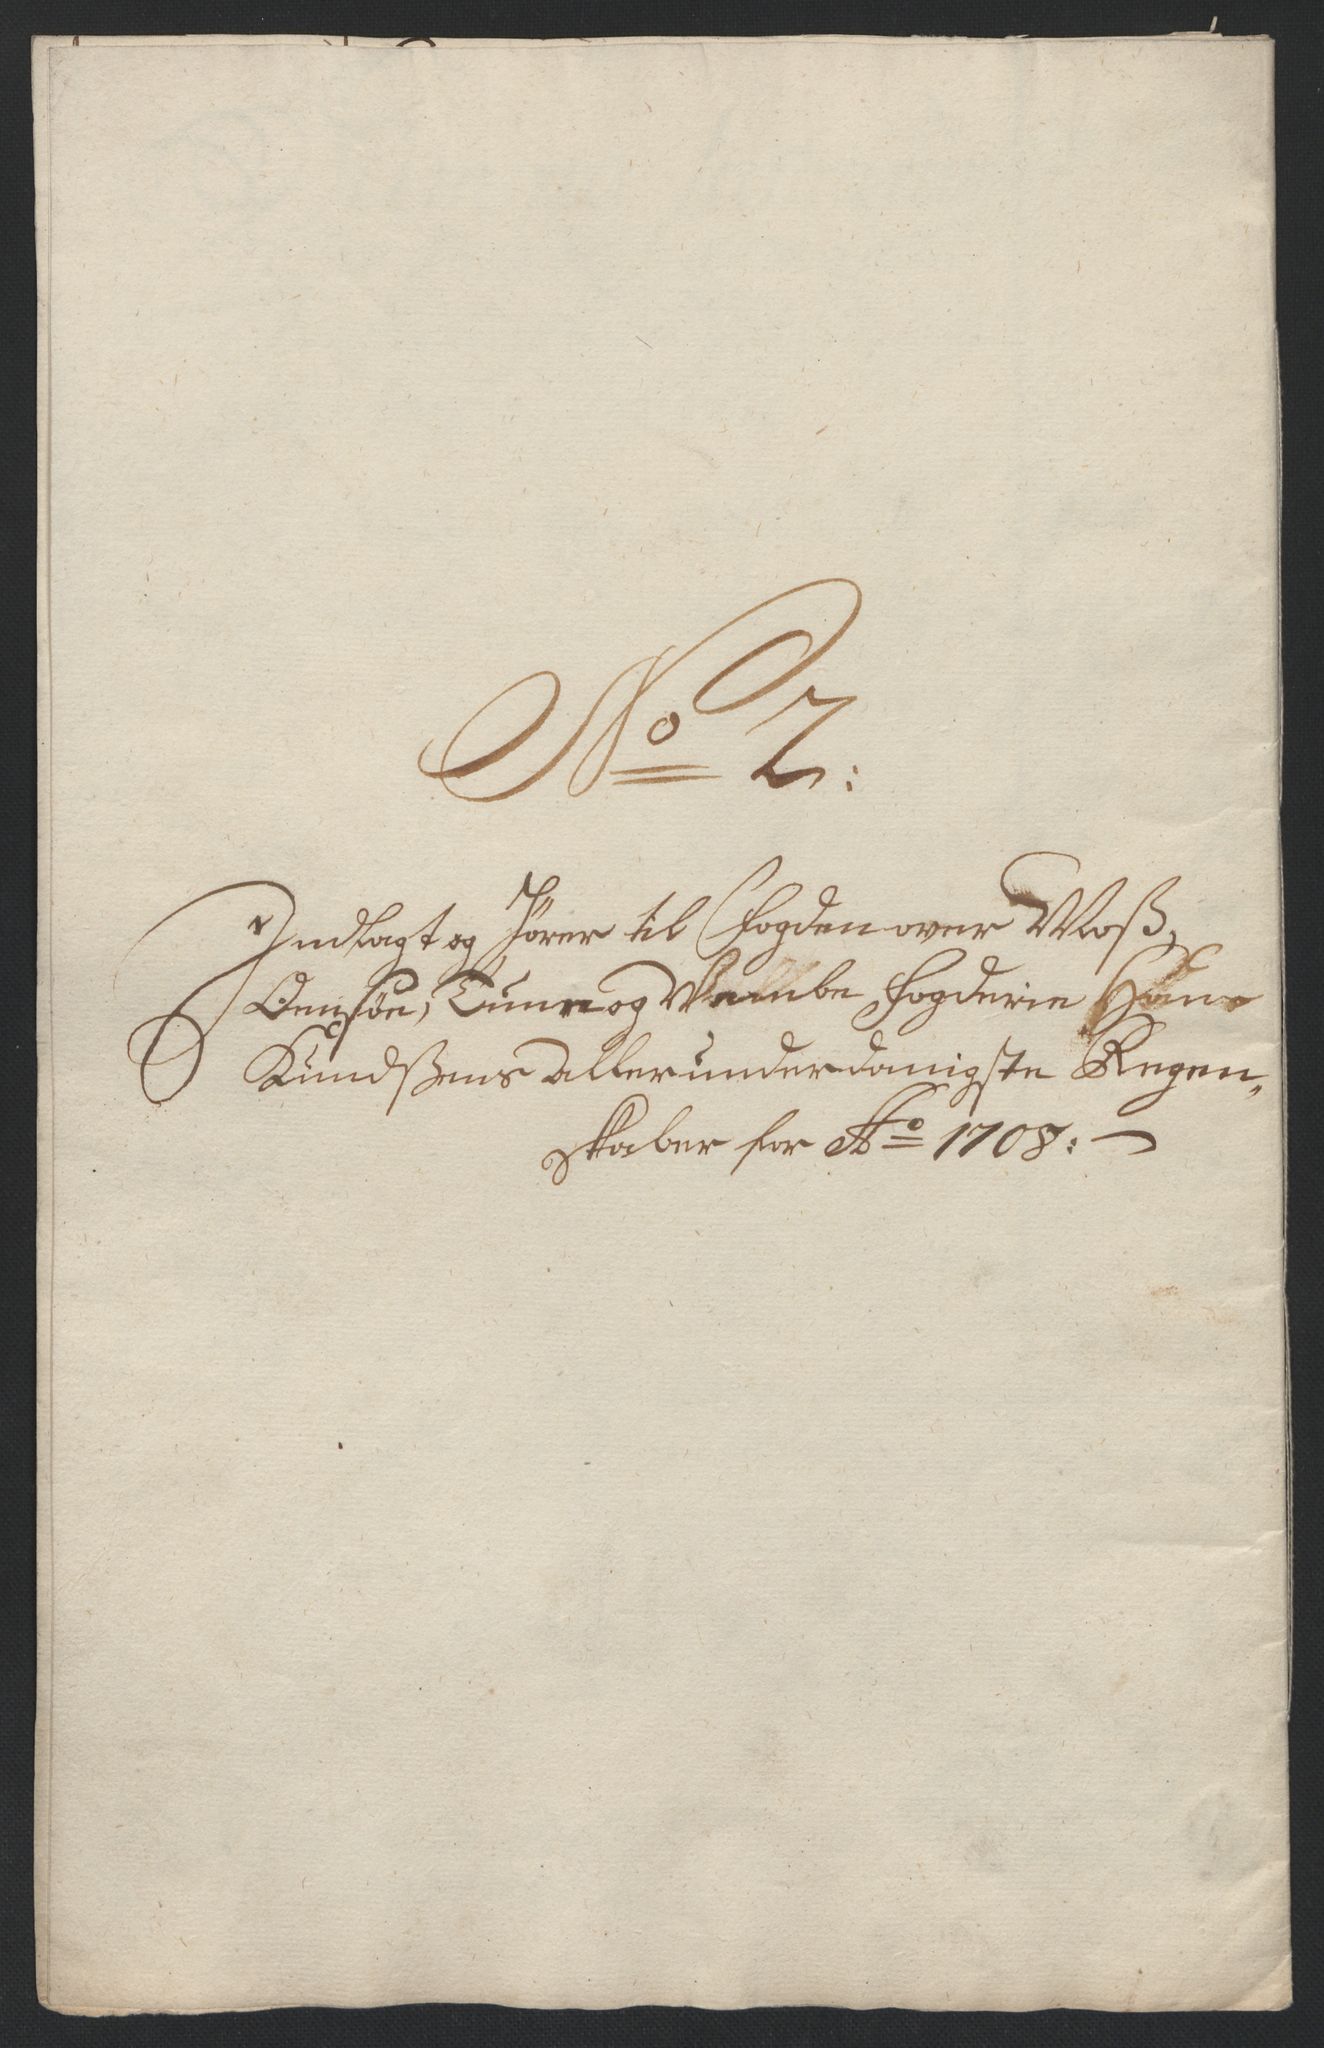 No 2:
Indlagt og hører til Fogden over Moß,
Onsøe, Tune og Vembe fogderie Hans
Kundßens allerunderdanigste Regen„
skaber for Ao 1708: